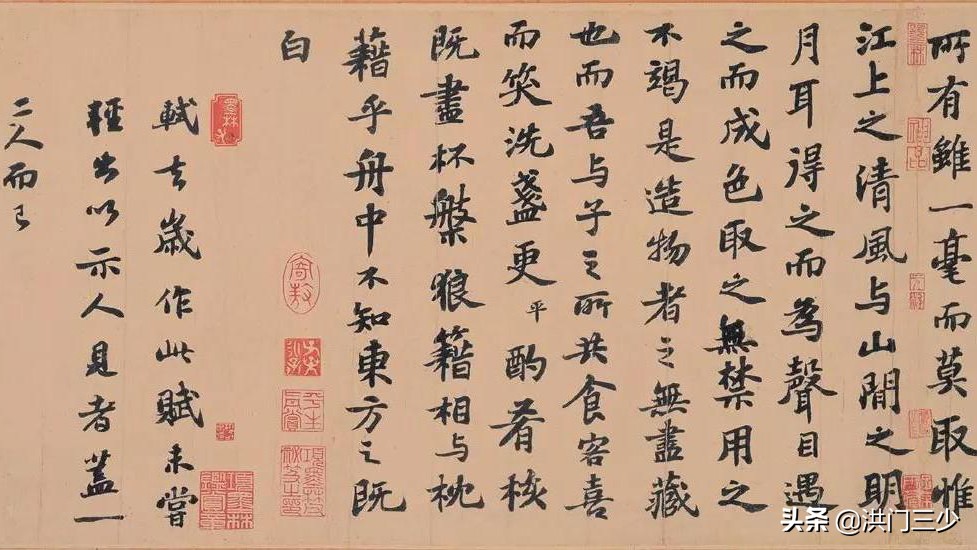 所有雖一毫而莫取惟
江上之清風与山間之明
月耳得之而為聲目遇
之而成色取之無禁用之
不竭是造物者之無盡藏
也而吾与子之所共食客喜
而笑洗盞更平酌肴核
既盡杯槃狼籍相与枕
藉乎舟中不知東方之既
白
軾去歲作此賦未嘗
輕出以示人見者盖一
二人而已
头条 @洪门三少